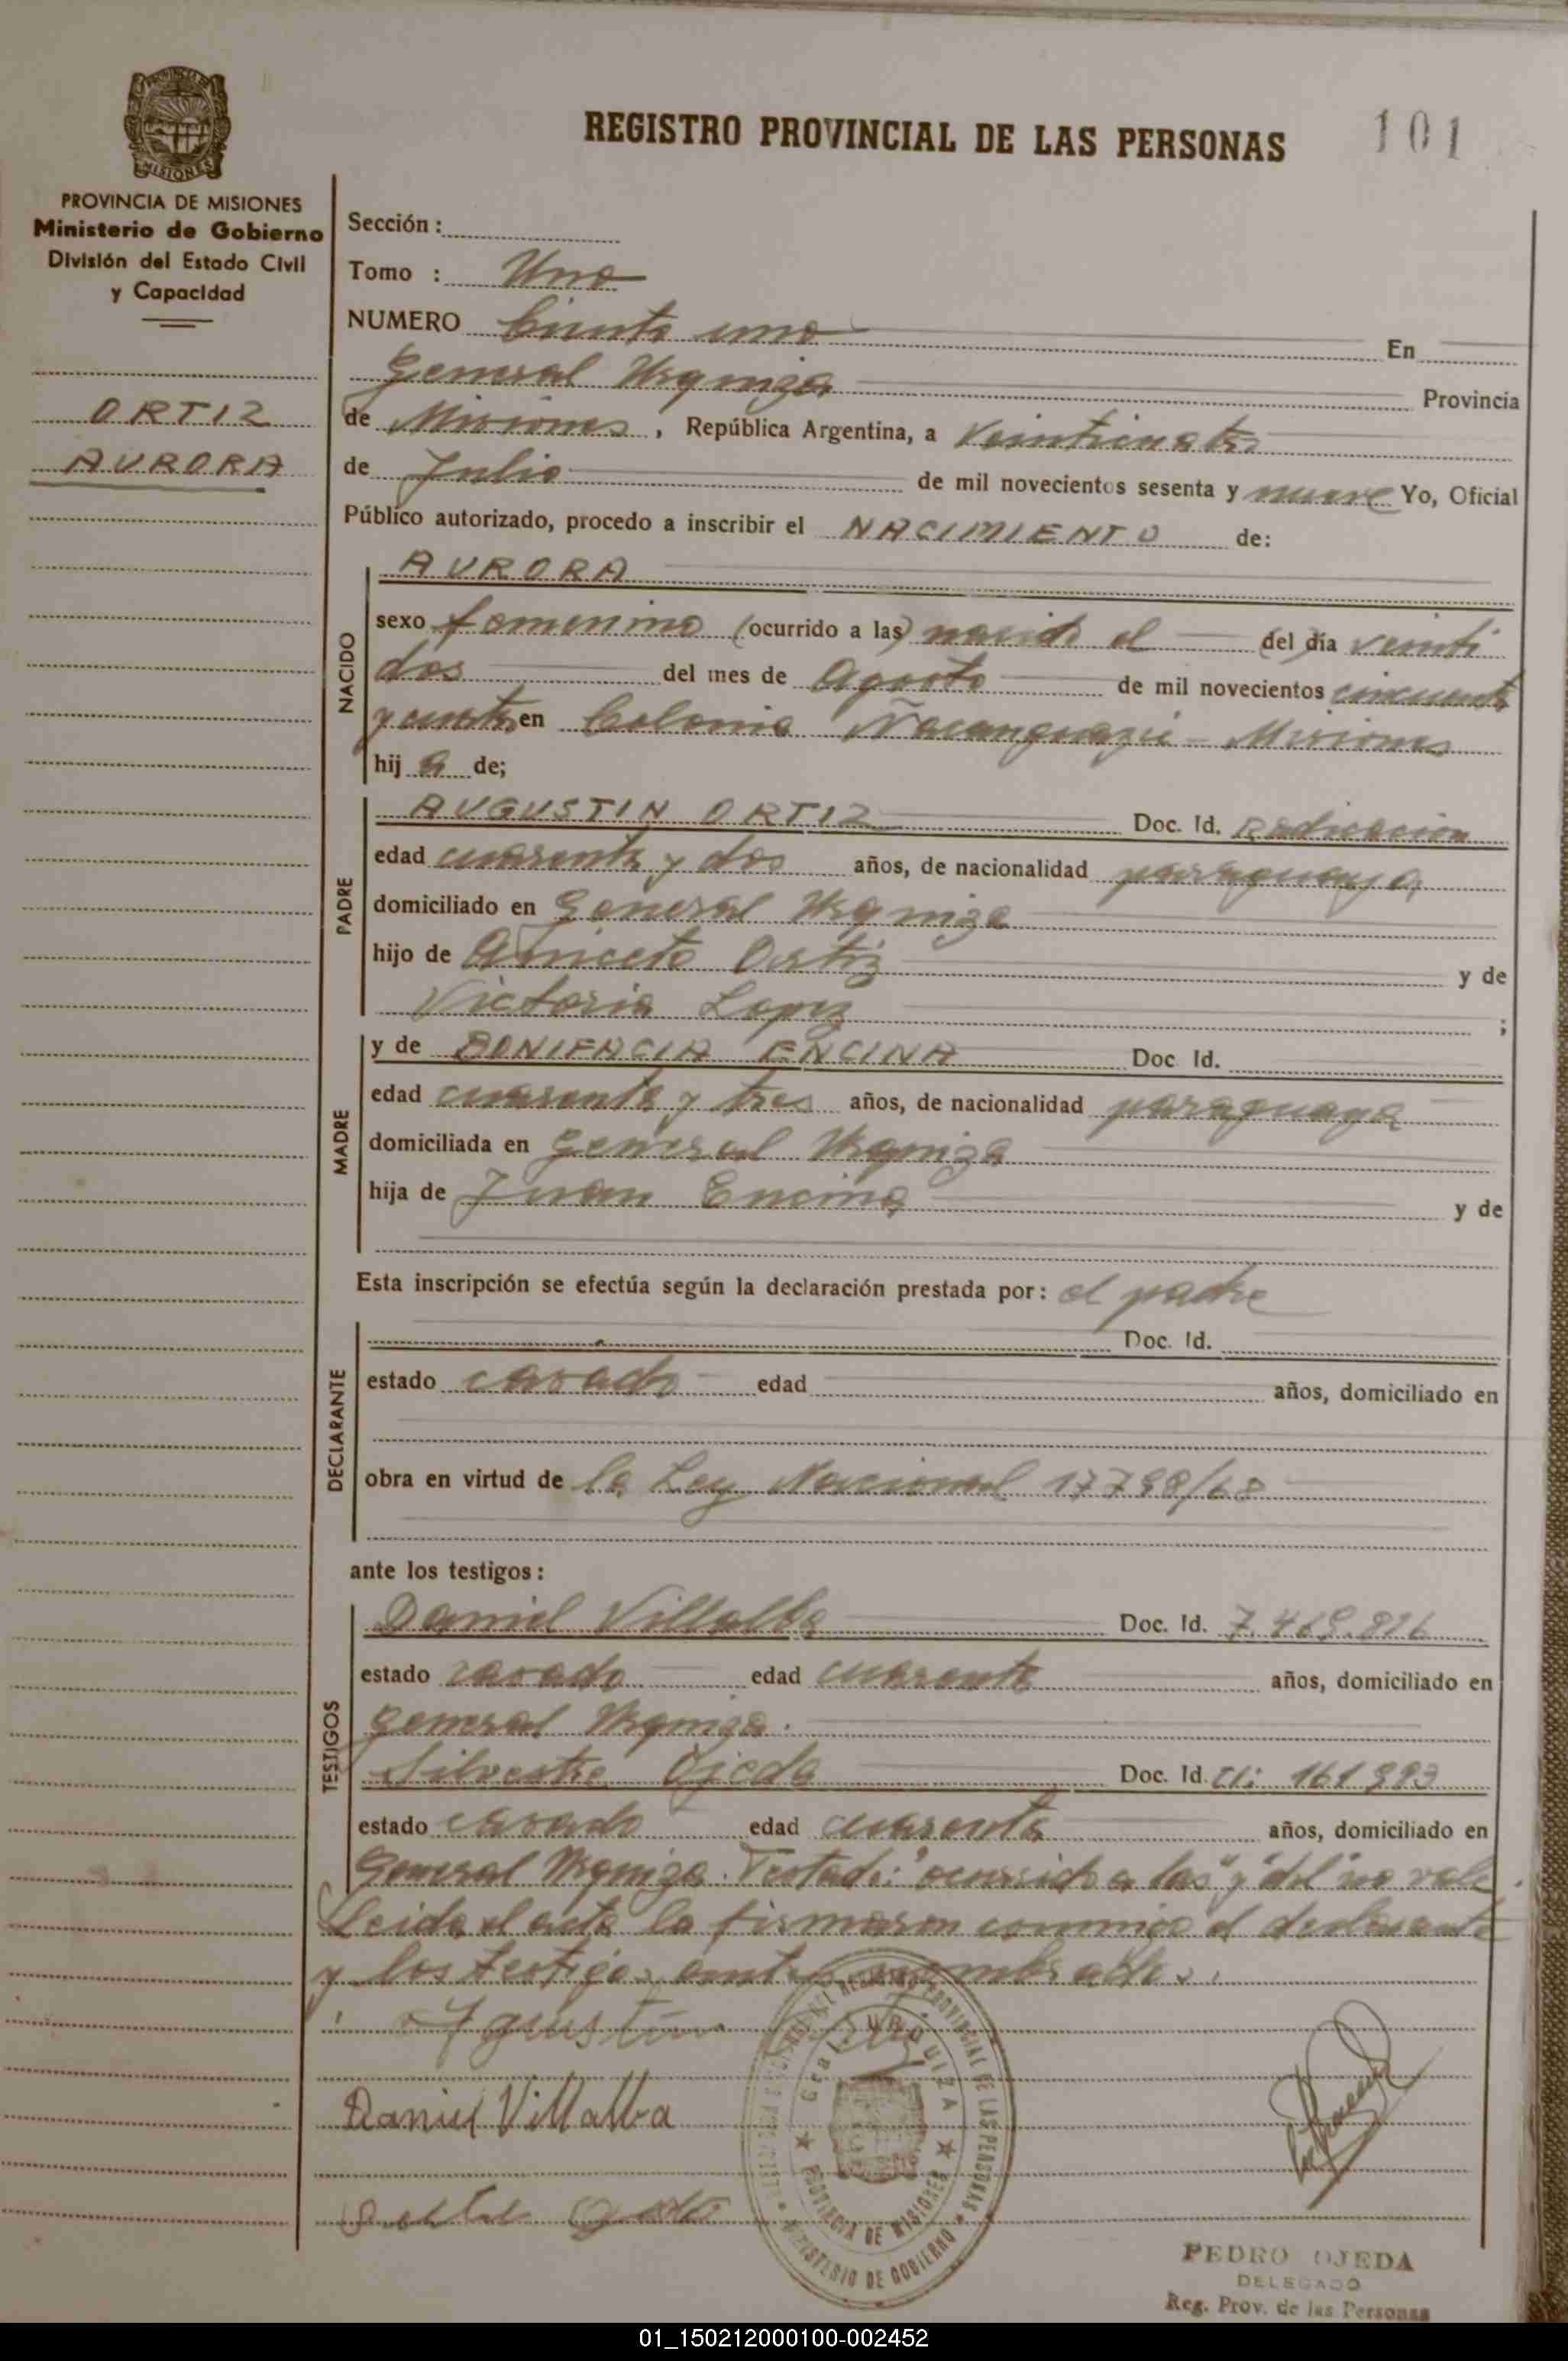 REGISTRO PROVINCIAL DE LAS PERSONAS 101
MISIONES
PROVINCIA DE MISIONES
Ministerio de Gobierno
División del Estado Civil
y Capacidad
ORTIZ
AURORA
Sección :
Tomo : Uno
NUMERO Ciento uno En
General Urquiza Provincia
de Misiones , República Argentina, a Veinticuatro
de Julio de mil novecientos sesenta y nueve Yo, Oficial
Público autorizado, procedo a inscribir el NACIMIENTO de:
NACIDO
AURORA
sexo femenino (ocurrido a las) nacida el (del) día veinti
dos del mes de Agosto de mil novecientos cincuenta
y en Colonia Ñacanguazú - Misiones
hij a de;
PADRE
AUGUSTIN ORTIZ Doc. Id. Radicacion
edad cuarenta y dos años, de nacionalidad paraguaya
domiciliado en General Urquiza
hijo de Aniceto Ortiz y de
Victoria Lopez ;
MADRE
y de BONIFACIA ENCINA Doc. Id.
edad cuarenta y tres años, de nacionalidad paraguaya
domiciliada en General Urquiza
hija de Juan Encina y de
Esta inscripción se efectúa según la declaración prestada por: el padre
DECLARANTE
Doc. Id.
estado casado edad años, domiciliado en
obra en virtud de la Ley Nacional
ante los testigos:
TESTIGOS
Daniel Villalba Doc. Id.
estado casado edad cuarenta años, domiciliado en
General Urquiza.
Silvestre Ojeda Doc. Id.
estado casado edad cuarenta años, domiciliado en
General Urquiza. Testado: "ocurrido a las" y "del" no vale.
Leida el acta la firmaron conmigo el declarante
y los testigos antes nombrados.
Agustin
Daniel Villalba
REGISTRO PROVINCIAL DE LAS PERSONAS
Gral. URQUIZA
PROVINCIA DE MISIONES
MINISTERIO DE GOBIERNO
PEDRO OJEDA
DELEGADO
Reg. Prov. de las Personas
01_150212000100-002452